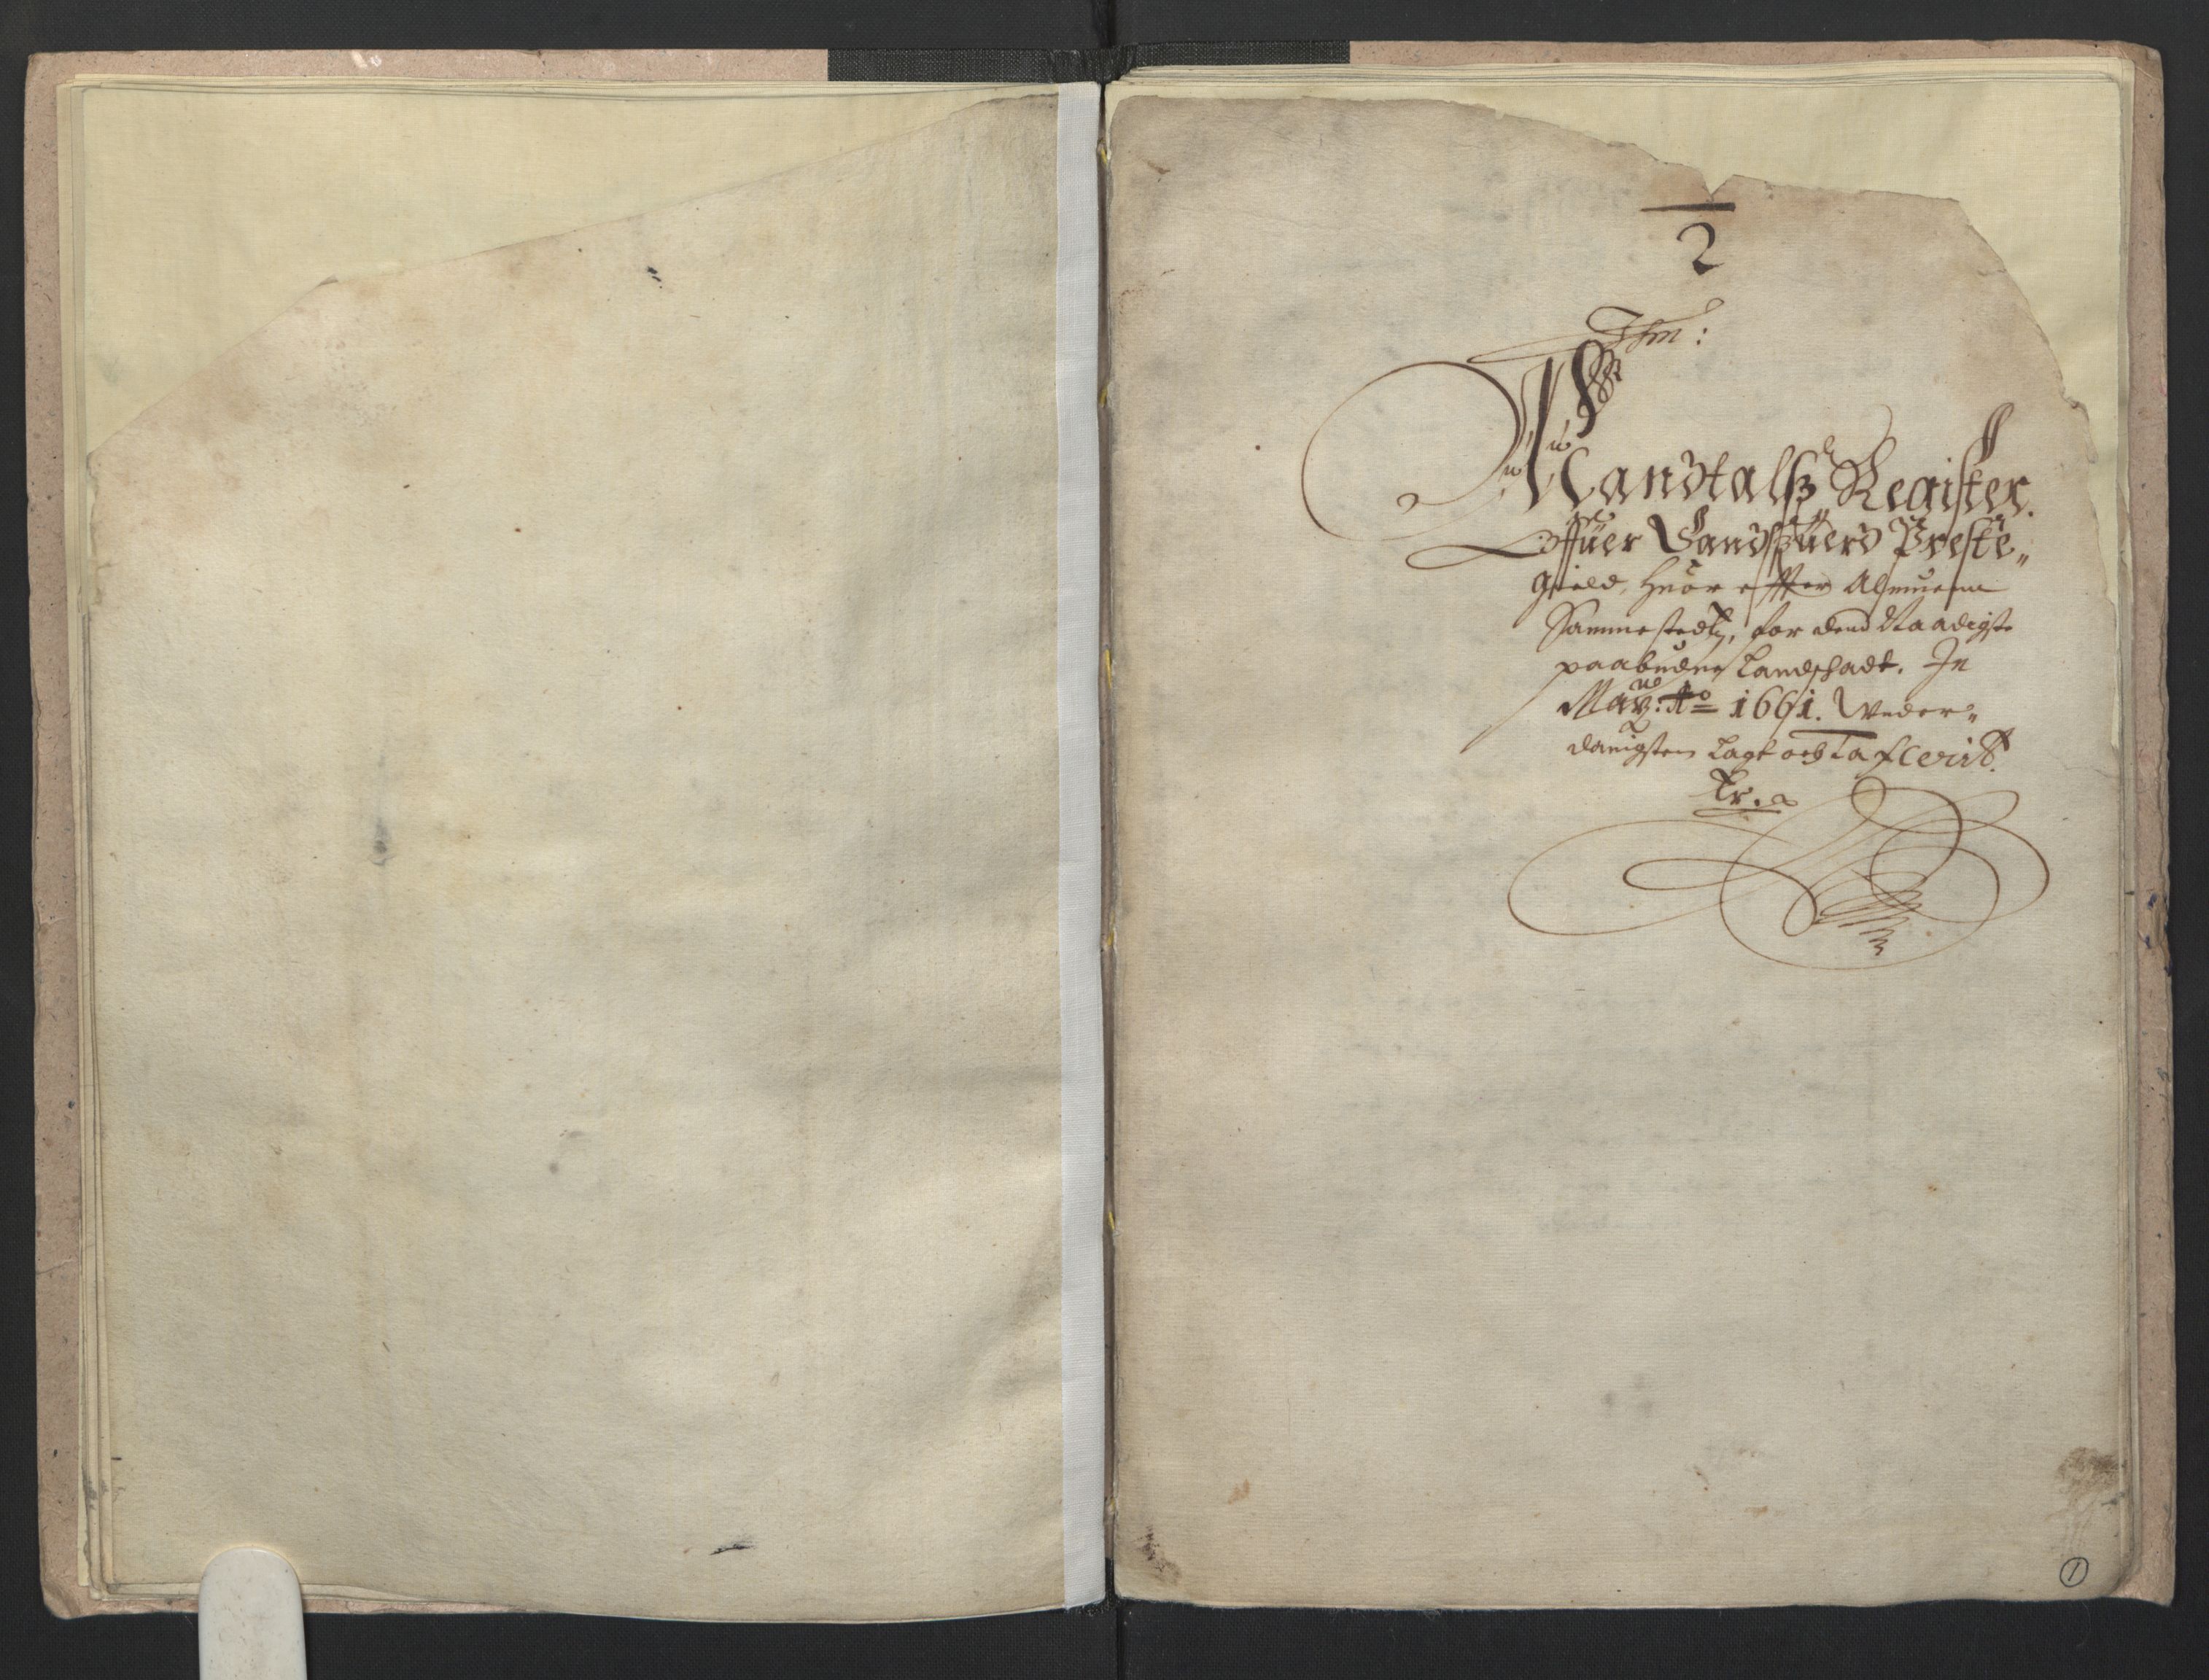 2
Ihm:
Mandtalß Register.
Offuer Sandßuerd Preste„
gield, Huor effter Almuenn
Sammestedtz, for dend Naadigste
paabudne Landschadt. In
Maÿ: Ao 1661. Under„
danigsten Lagt och Taxcerit.
1